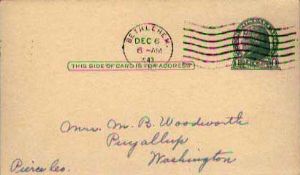 BETHLEHEM,
DEC 6
6 - AM
THIS SIDE OF CARD IS FOR ADDRESS
Mrs. M. B. Woodworth
Puyallup
Washington
Pierce Co.